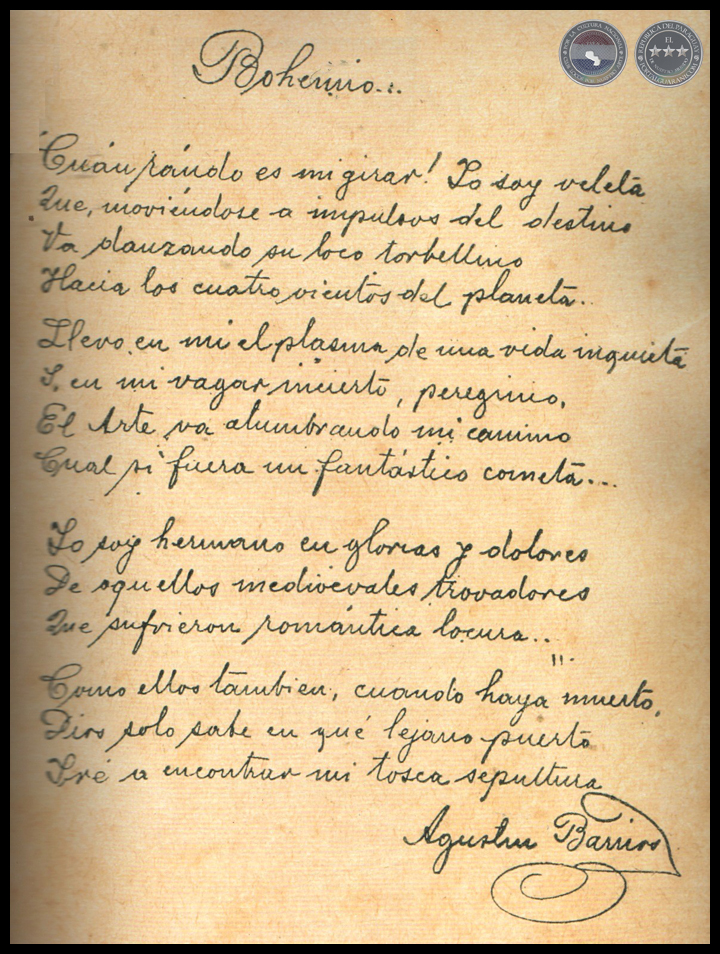 Bohemio...
Cuán rándo es mi girar! Yo soy veleta
Que, moviéndose a impulsos del destino
Va danzando su loco torbellino
Hacia los cuatro vientos del planeta..
Llevo en mi el plasma de una vida inquieta
Y, en mi vagar incierto, peregrino,
El Arte va alumbrando mi camino
Cual si fuera un fantástico cometa...
Yo soy hermano en glorias y dolores
De aquellos medioevales trovadores
Que sufrieron romántica locura...
Como ellos tambien, cuando haya muerto,
Dios solo sabe en qué lejano puerto
Iré a encontrar mi tosca sepultura
Agustin Barrios